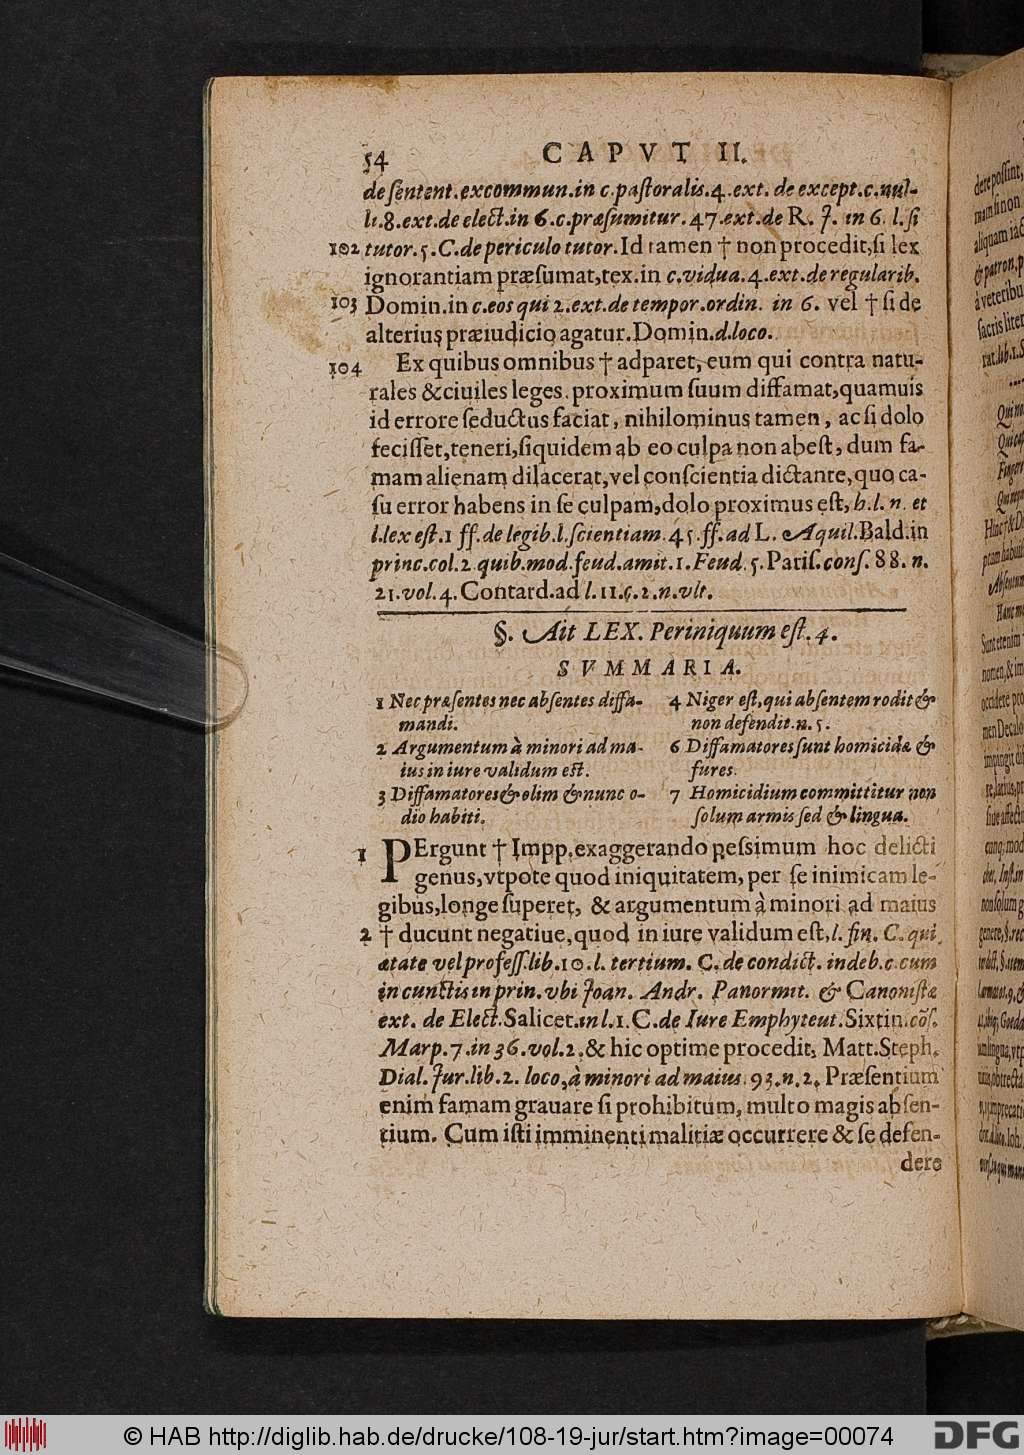 54 CAPVT II.
de sentent.excommun.in c.pastoralis.4.ext. de except.c.nul-
li.8.ext.de elect.in 6.c.præsumitur.47.ext.de R. J. in 6. l.si
102 tutor.5.C.de periculo tutor.Id tamen † non procedit,si lex
ignorantiam præsumat,tex.in c.vidua.4.ext.de regularib.
103 Domin.in c.eos qui 2.ext.de tempor.ordin. in 6. vel † si de
alterius præiudicio agatur.Domin.d.loco.
104 Ex quibus omnibus † adparet, eum qui contra natu-
rales & ciuiles leges proximum suum diffamat,quamuis
id errore seductus faciat, nihilominus tamen, ac si dolo
fecisset,teneri,siquidem ab eo culpa non abest, dum fa-
mam alienam dilacerat,vel conscientia dictante,quo ca-
su error habens in se culpam,dolo proximus est, h.l. n. et
l.lex est.1 ff.de legib.l.scientiam.45.ff.ad L. Aquil.Bald.in
princ.col.2 quib.mod.feud.amit.1.Feud.5.Paris.cons.88.n.
21.vol.4.Contard.ad l.11.ç.2.n.vlt.
§. Ait LEX. Periniquum est.4.
SVMMARIA.
1 Nec præsentes nec absentes diffa-
mandi.
2 Argumentum à minori ad ma-
ius in iure validum est.
3 Diffamatores & olim & nunc o-
dio habiti.
4 Niger est,qui absentem rodit &
non defendit.n.5.
6 Diffamatores sunt homicidæ &
fures.
7 Homicidium committitur non
solum armis sed & lingua.
1 PErgunt † Impp.exaggerando pessimum hoc delicti
genus,vtpote quod iniquitatem, per se inimicam le-
gibus,longe superet, & argumentum à minori ad maius
2 † ducunt negatiue,quod in iure validum est,l.fin. C.qui
ætate vel profess.lib.10.l. tertium. C.de condict. indeb.c.cum
in cunctis in prin.vbi Joan. Andr. Panormit. & Canonistæ
ext. de Elect.Salicet.in l.1.C.de Iure Emphyteut.Sixtin.cõs.
Marp.7.in 36.vol.2.& hic optime procedit, Matt.Steph.
Dial.Jur.lib.2. loco,à minori ad maius.93.n.2. Præsentium
enim famam grauare si prohibitum, multo magis absen-
tium. Cum isti imminenti malitiæ occurrere & se defen-
dere
© HAB http://diglib.hab.de/drucke/108-19-jur/start.htm?image=00074
DFG